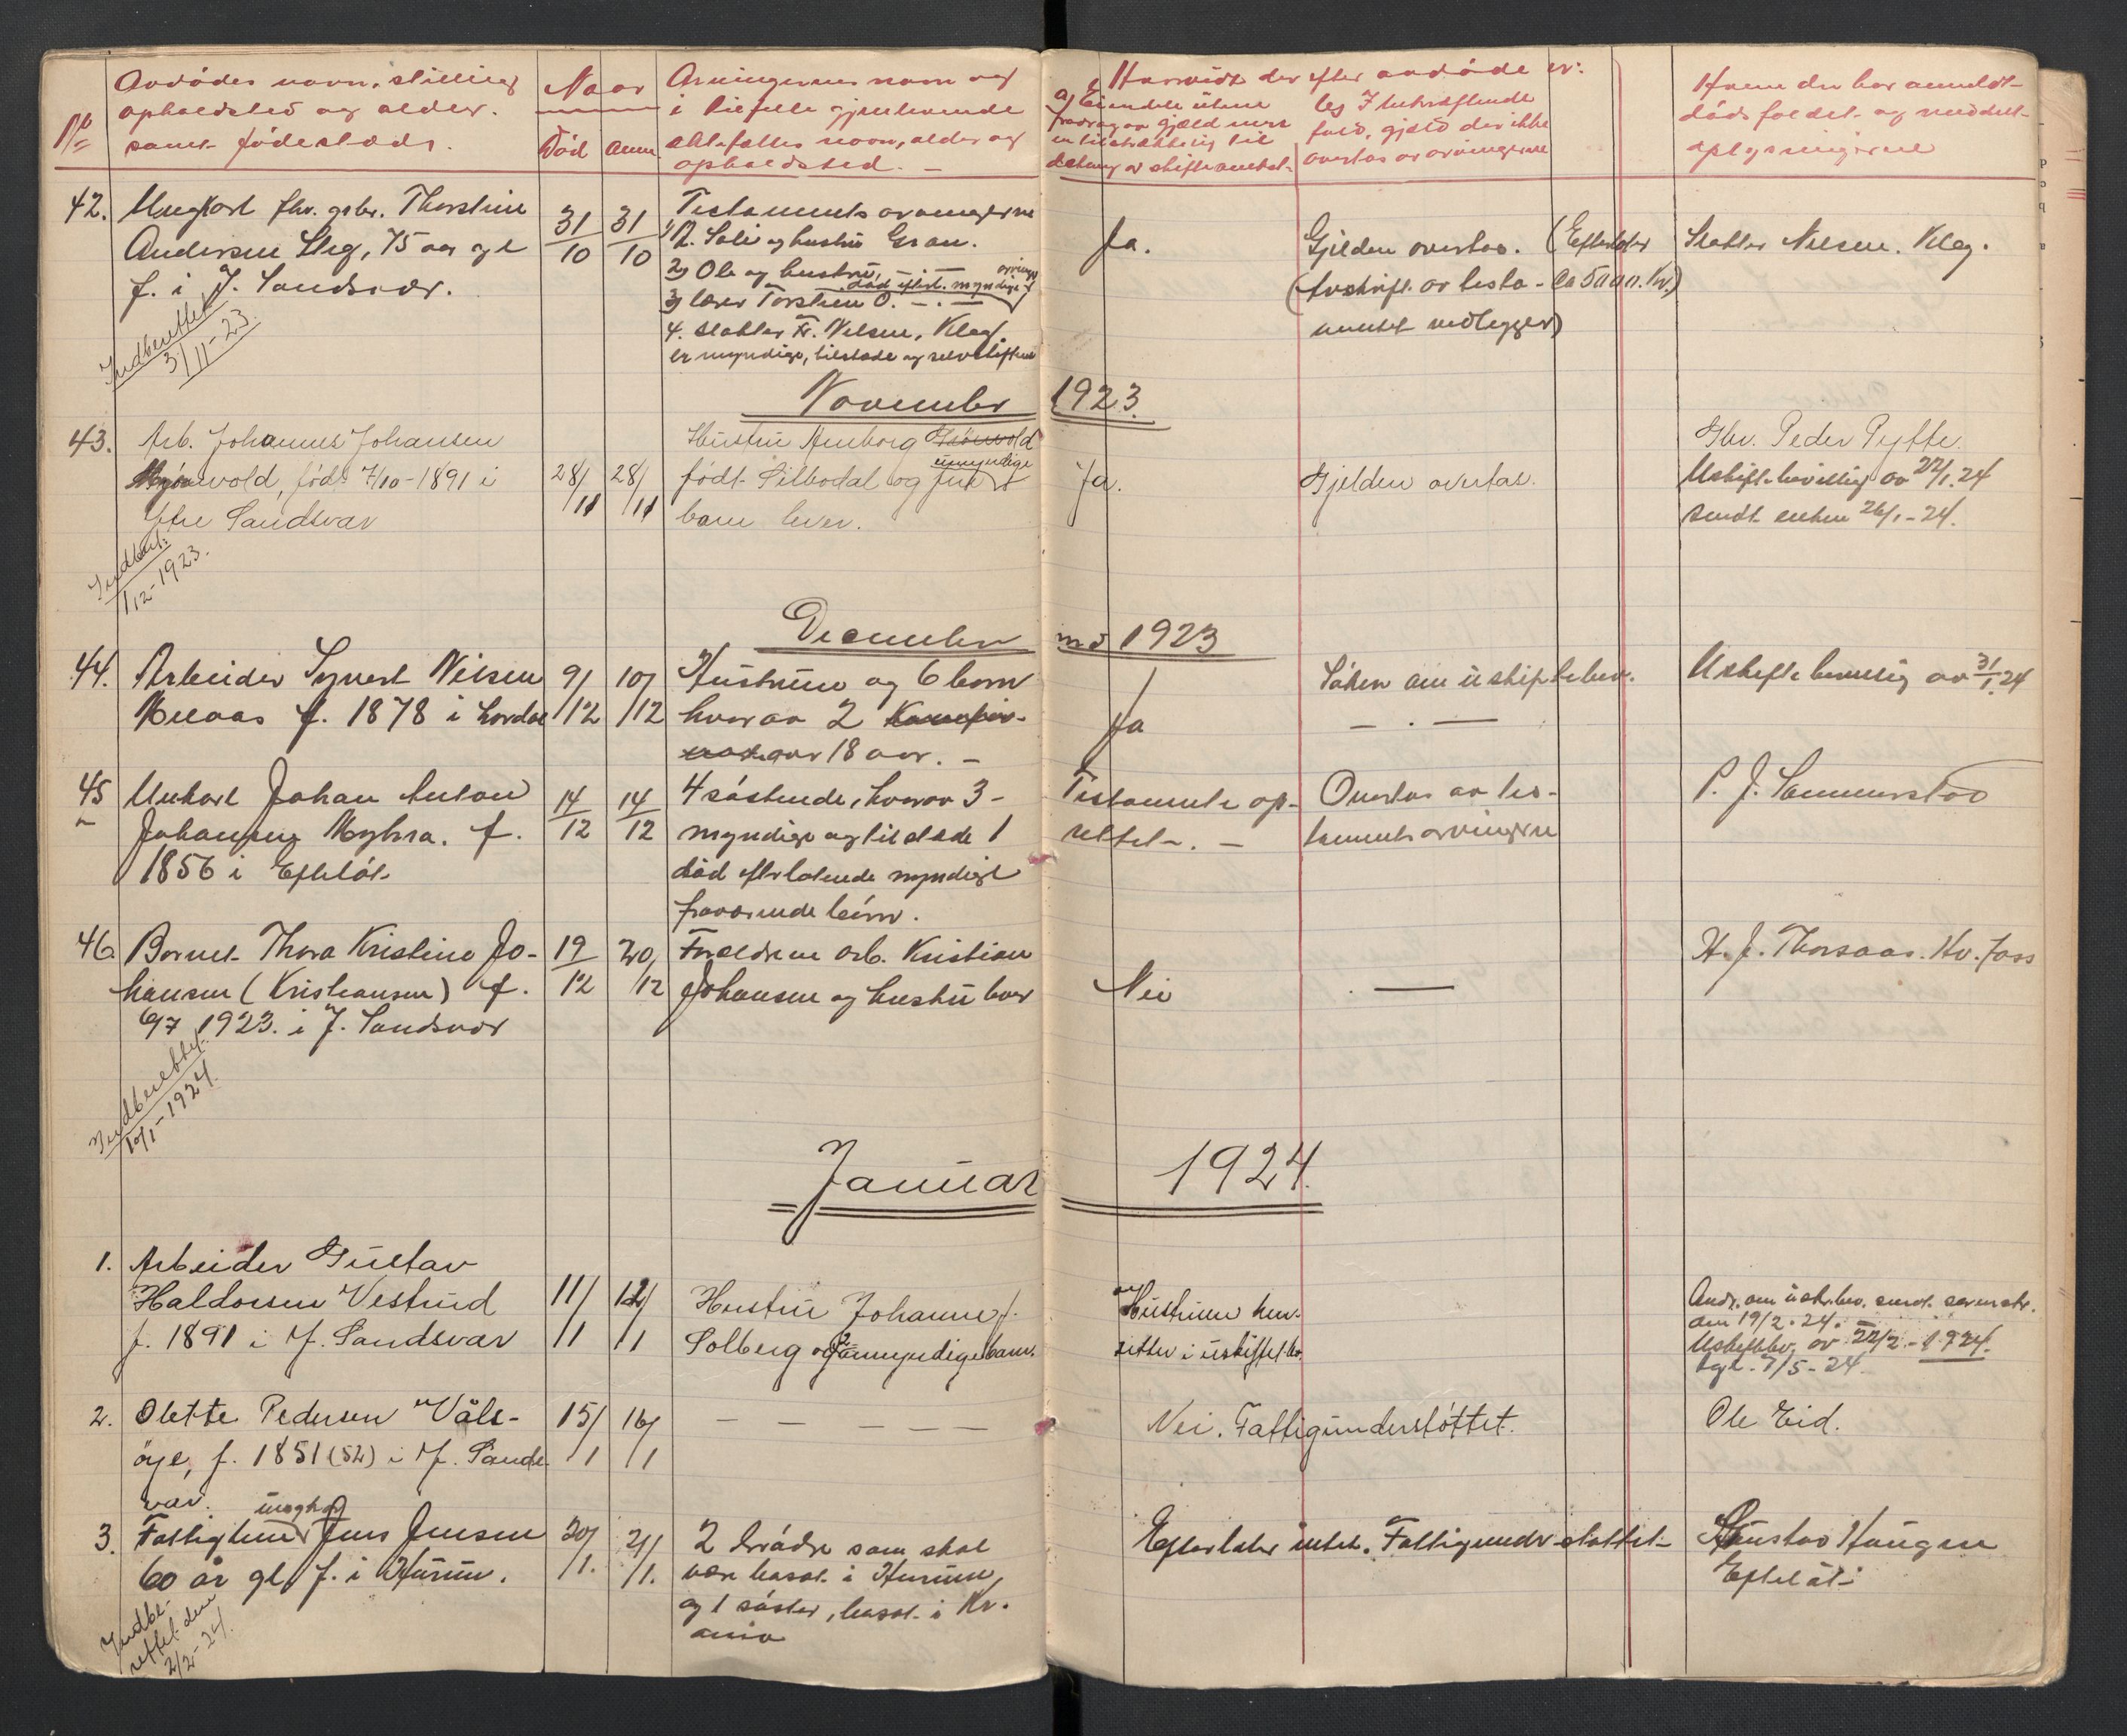 No
Avdödes navn, stilling
opholdsted og alder.
samt födesteds.
Naar
Död anm.
Arvingernes navn og
i tilfælle gjenlevende
ektefælles navn, alder og
opholdsted. –
Hvorvidt der efter avdöde er:
a) Eiendele uten
fradrag av gjæld mere
en tilstrækkelig til
dækning av skifteomkost-
b) I bekræftende
fald, gjæld der ikke
overtas av arvingerne
Hvem der har anmeldt
dödsfaldet og meddelt
oplysningerne
42. Ungkarl fhv. gbr. Thorstein
Andersen Steg, 75 aar gl
f. i Y. Sandsvær.
Indberettet
3/11-23.
31/10 31/10
Testaments arvingerne
1) A. Soli og hustru Gran.
2) Ole og hustru, — · —
död efterl. myndige arvinger
3) lærer Torstein O. — · —
4. Slakter Fr. Nilsen, Klag.
er myndige, tilstede og selvskiftende
Ja.
Gjelden overtas. (Efterlater
(Avskrift av testa- ca 5000. kr.)
mentet vedlegges)
Slakter Nilsen. Klag.
November 1923.
43. Arb. Johannes Johansen
Myrvold, född 7/10-1891 i
Ytre Sandsvær
Indberet:
1/12-1923.
28/11 28/11
Hustru Amborg Grönvold
födt Silbodal og fire umyndige
barn lever.
Ja.
Gjelden overtas.
Gbr. Peder Pytte.
Uskiftebevillig av 22/1.24
sendt enken 26/1-24.
December md 1923
44. Arbeider Syvert Nilsen
Moaas f. 1878 i Lardal
9/12 10/12
Hustruen og 6 barn
hvorav 2
over 18 aar. –
Ja
Söker om uskiftebev.
— · —
Uskifte bevillig av 31/1.24
45 Unkarl Johan Anton
Johansen Myhra. f.
1856 i Efteløt
14/12 14/12
4 söskende, hvorav 3 -
myndige og tilstede 1
död efterlatende myndige
fraværende börn.
Testamente op-
rettet. –
Overtas av tes-
tamentsarvingerne
P. J. Sommerstad
46 Barnet Thora Kristine Jo-
hansen (Kristiansen) f.
6/7 1923. i Y. Sandsvær
Indberettet
10/1-1924.
19/12 20/12
Forældrene arb. Kristian
Johansen og hustru lever
Nei
· —
H. J. Thorsaas. Hv. foss
Januar 1924.
1. Arbeider Gustav
Haldorsen Vestrud
f. 1891 i Y. Sandsvær
11/1 12/1
Hustru Johanne f.
Solberg og 2 umyndige barn.
Hustruen hen-
sitter i uskiftet bo.
Andr. om uskr.bev. sendt sorenskr.
den 19/2.24. –
Uskiftebev. av 22/2-1924.
tgl. 7/5-24.
2. Olette Pedersen Våle-
öye, f. 1851 (52) i Y. Sands-
vær.
15/1 16/1
— — — — —
Nei. Fattigunderstøttet.
Ole Eid.
3. Fattiglem ungkar Jens Jensen
60 år gl. f. i Hurum.
Indbe-
rettet den
2/2-24.
20/1. 21/1.
2 brödre som skal
være bosat i Hurum,
og 1 söster, bosat i Kr.
ania
Efterlater intet. Fattigunderstøttet
Gustav Haugen
Efteløt